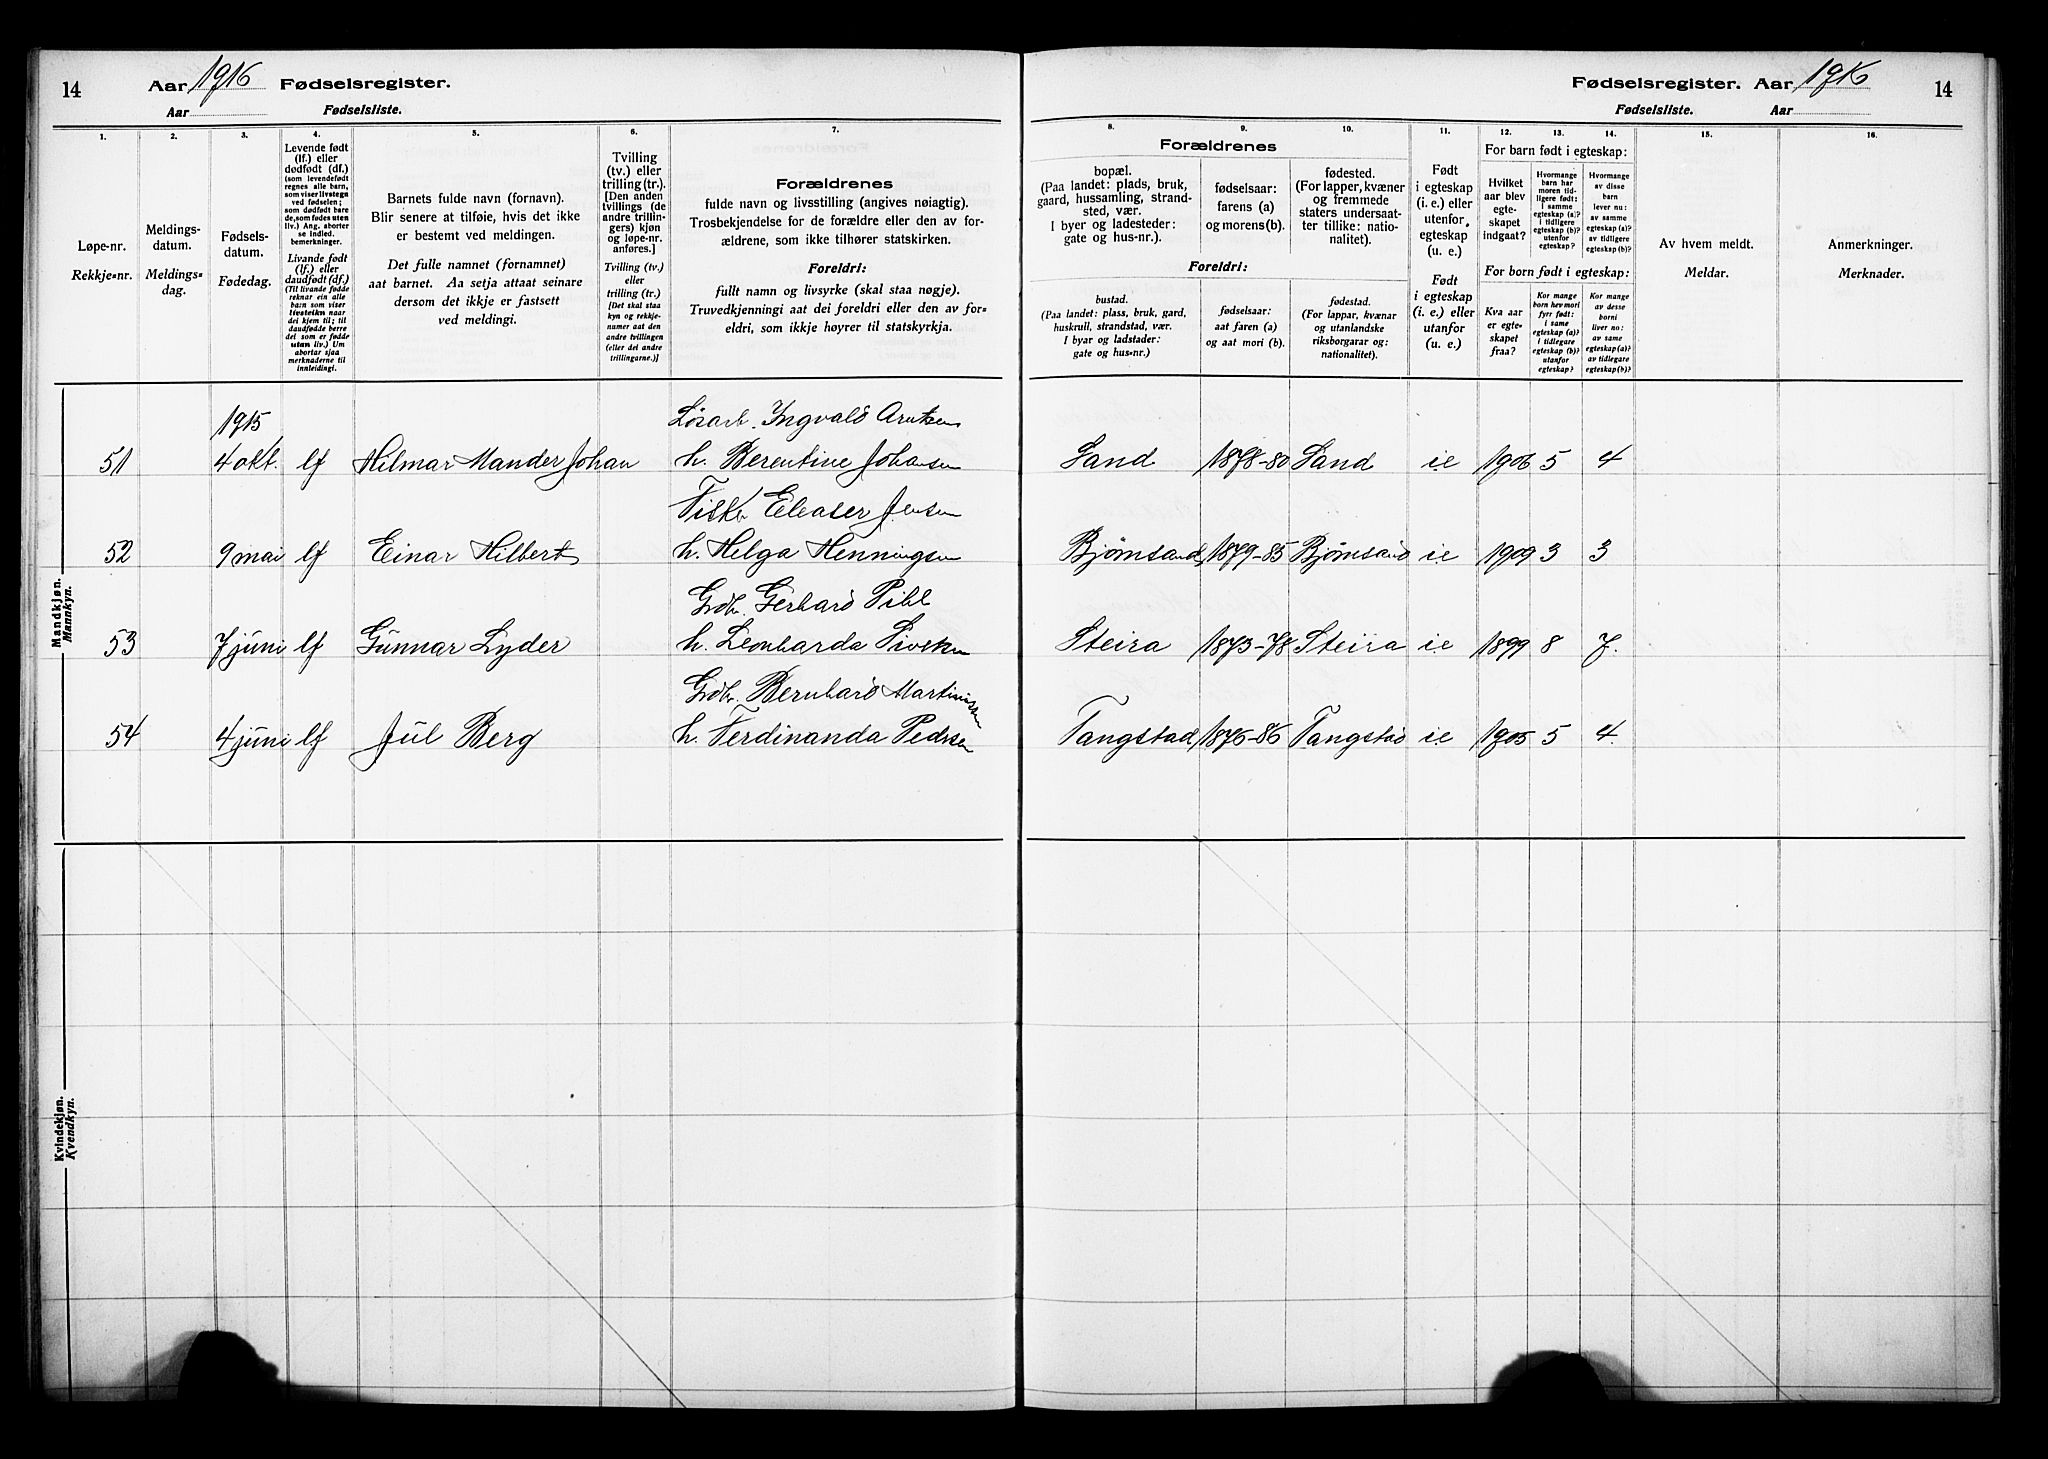 14
Aar 1916 Fødselsregister.
Aar Fødselsliste.
1. 2. 3. 4. 5. 6. 7.
Løpe-nr.
Rekkje-nr.
Meldings-
datum.
Meldings-
dag.
Fødsels-
datum.
Fødedag.
Levende født
(lf.) eller
dødfødt (df.)
(som levendefødt
regnes alle barn,
som viser livstegn
ved fødselen;
som dødfødt bare
de, som fødes uten
liv.) Ang. aborter
se indled.
bemerkninger.
Livande født
(lf.) eller
daudfødt (df.)
(Til livande fødde
reknar ein alle
barn som viser
livsteikn naar
dei kjem til; til
daudfødde berre
dei som er fødde
utan liv.) Um
abortar sjaa
merknaderne til
innleidingi.
Barnets fulde navn (fornavn).
Blir senere at tilføie, hvis det ikke
er bestemt ved meldingen.
Det fulle namnet (fornamnet)
aat barnet. Aa setja attaat seinare
dersom det ikkje er fastsett
ved meldingi.
Tvilling
(tv.) eller
trilling (tr.).
[Den anden
tvillings (de
andre trillin-
gers) kjøn
og løpe-nr.
anføres.]
Tvilling (tv.)
eller
trilling (tr.)
[Det skal staa
kyn og rekkje-
numer aat den
andre tvillingen
(eller dei andre
trillingarne.)]
Forældrenes
fulde navn og livsstilling (angives nøiagtig).
Trosbekjendelse for de forældre eller den av for-
ældrene, som ikke tilhører statskirken.
Foreldri:
fullt namn og livsyrke (skal staa nøgje).
Truvedkjenningi aat dei foreldri eller den av for-
eldri, som ikkje høyrer til statskyrkja.
Mandkjøn.
Mannkyn.
1915 Løsarb. Ingvald Arntsen
51 4 okt. lf Hilmar Mander Johan h. Berentine Johansen
Fisk. Eleaser Jensen
52 9 mai lf Einar Hilbert h. Helga Henningsen
Grdbr. Gerhard Pihl
53 7 juni lf Gunnar Lyder h. Leonharda Sivertsen
Grdbr. Bernhard Martinussen
54 4 juni lf Jul Berg h. Ferdinanda Pedersen
Kvindekjøn.
Kvendkyn.
Fødselsregister. Aar 1916
14
Fødselsliste. Aar
8. 9. 10. 11. 12. 13. 14. 15. 16.
Forældrenes
bopæl.
(Paa landet: plads, bruk,
gaard, hussamling, strand-
sted, vær.
I byer og ladesteder:
gate og hus-nr.).
fødselsaar:
farens (a)
og morens (b).
fødested.
(For lapper, kvæner
og fremmede
staters undersaat-
ter tillike: natio-
nalitet).
Foreldri:
bustad.
(Paa landet: plass, bruk, gard,
huskrull, strandstad, vær.
I byar og ladstader:
gate og hus-nr.)
fødselsaar:
aat faren (a)
og aat mori (b).
fødestad.
(For lappar, kvænar
og utanlandske
riksborgarar og:
nationalitet).
Født
i egteskap
(i. e.) eller
utenfor
egteskap
(u. e.)
Født
i egteskap
(i. e.) eller
utanfor
(u. e.)
For barn født i egteskap:
Hvilket
aar blev
egte-
skapet
indgaat?
Hvormange
barn har
moren tid-
ligere født:
i samme
egteskap (a)?
i tidligere
egteskap (b)?
utenfor
egteskap?
Hvormange
av disse
barn
lever nu:
av samme
egteskap (a)?
av tidligere
egteskap (b)?
For born født i egteskap:
Kva aar
er egte-
skapet
fraa?
Kor mange
born hev mori
fyrr født:
i same
egteskap (a)?
i tidlegare
egteskap (b)?
utanfor
egteskap?
Kor mange
av desse
borni
liver no:
av same
egteskap (a)?
av tidlegare
egteskap (b)?
Av hvem meldt.
Meldar.
Anmerkninger.
Merknader.
Sand 1878-80 Sand i.e 1906 5 4
Bjørnsand 1879-85 Bjørnsand i.e 1909 3 3
Steira 1873-78 Steira i.e 1899 8 7.
Tangstad 1876-86 Tangstad i.e 1905 5 4.